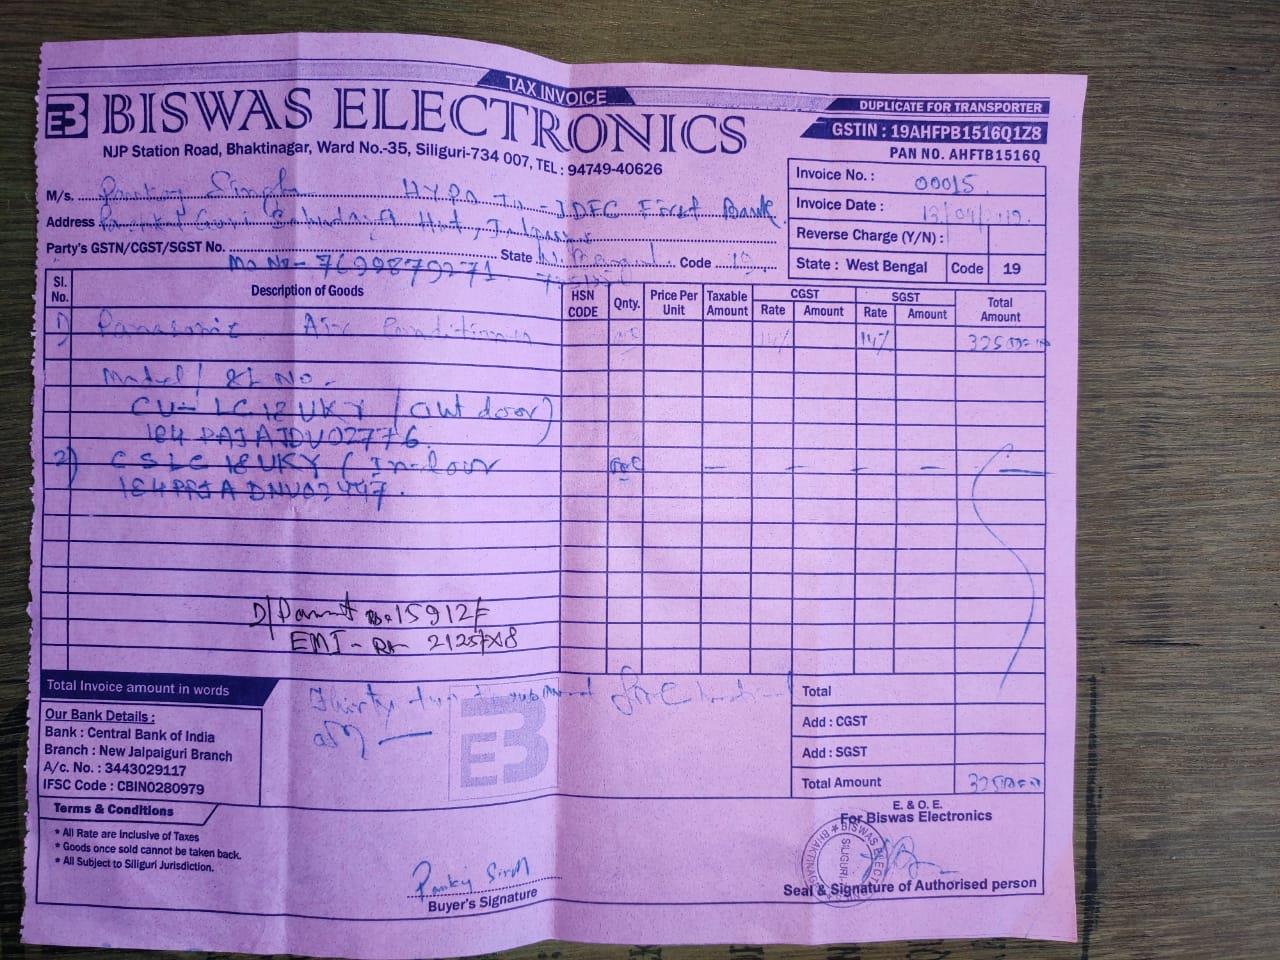 TAX INVOICE
DUPLICATE FOR TRANSPORTER
EB BISWAS ELECTRONICS
GSTIN : 19AHFPB1516Q1Z8
PAN NO. AHFTB1516Q
NJP Station Road, Bhaktinagar, Ward No.-35, Siliguri-734 007, TEL : 94749-40626
Invoice No. : 00015
M/s. Pankaj Singh HYPO To - IDFC First Bank
Invoice Date : 13/04/
Address Hat,
Reverse Charge (Y/N) :
Party's GSTN/CGST/SGST No. State W. Bengal Code 19
State : West Bengal Code 19
Mo No - 7699879271
Sl. No. Description of Goods HSN CODE Qnty. Price Per Unit Taxable Amount CGST Rate Amount SGST Rate Amount Total Amount
1) Panasonic Air Conditioner 14% 14% 32500
Model / SL No.
CU- LC18UKY (Out door)
184 PAJAJDV02776.
2) CSLC 18UKY (In-door
D/Payment Rs. 15912/-
EMI - Rs 2125/-x8
Total Invoice amount in words Thirty two thousand five hundred
only
Total
Our Bank Details :
Bank : Central Bank of India
Branch : New Jalpaiguri Branch
A/c. No. : 3443029117
IFSC Code : CBIN0280979
EB
Add : CGST
Add : SGST
Total Amount 32500
Terms & Conditions
* All Rate are Inclusive of Taxes
* Goods once sold cannot be taken back.
* All Subject to Siliguri Jurisdiction.
E. & O. E.
For Biswas Electronics
Pankaj Singh
Buyer's Signature
Seal & Signature of Authorised person